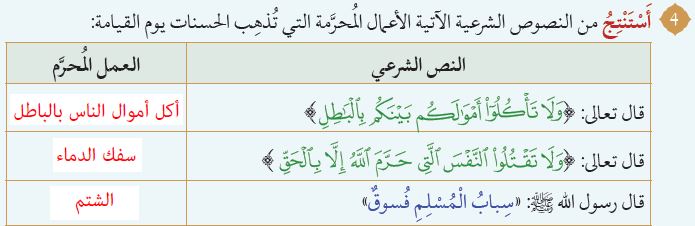 4 أَسْتَنْتِجُ من النصوص الشرعية الآتية الأعمال المُحرَّمة التي تُذهِب الحسنات يوم القيامة:
النص الشرعي العمل المُحرَّم
قال تعالى: ﴿وَلَا تَأْكُلُوٓا۟ أَمْوَٰلَكُم بَيْنَكُم بِٱلْبَٰطِلِ﴾ أكل أموال الناس بالباطل
قال تعالى: ﴿وَلَا تَقْتُلُوا۟ ٱلنَّفْسَ ٱلَّتِى حَرَّمَ ٱللَّهُ إِلَّا بِٱلْحَقِّ﴾ سفك الدماء
قال رسول الله ﷺ: «سِبابُ الْمُسْلِمِ فُسوقٌ» الشتم